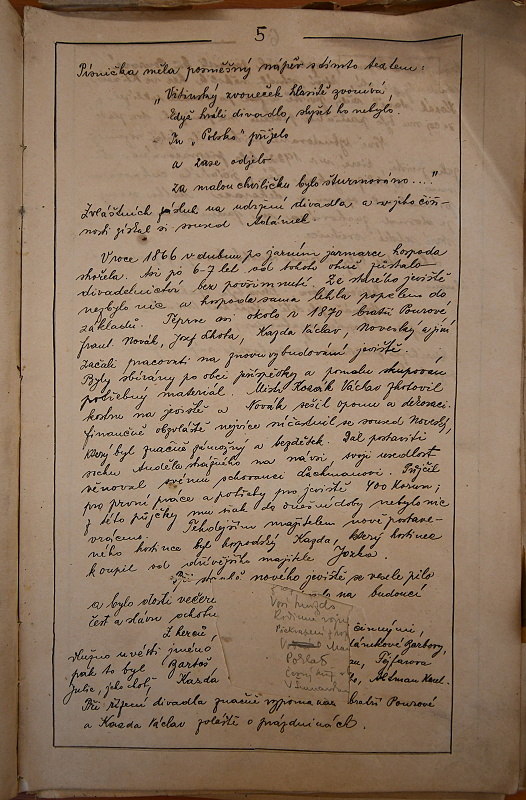 5
Písnička měla posměšný nápěv s tímto textem:
„Vidinský zvoneček hlasitě zvonívá,
když hráli divadlo, slyšet ho nebylo.
Tu „Polsko" přijelo
a zase odjelo
za malou chviličku bylo šturmováno...."
Zvláštních zásluh na udržení divadla a v jeho čin-
nosti získal si soused Adámek.
V roce 1866 v dubnu po jarním jarmarce hospoda
shořela. Asi po 6-7 let od tohoto ohně zůstalo
divadelnictví bez povšimnutí. Ze starého jeviště
nezbylo nic a hospoda sama lehla popelem do
základů. Teprve asi okolo r. 1870 bratři Pourové
frant. Novák, Josef Lhota, Kazda Václav, Novotný a jiní
začali pracovati na znovuvybudování jeviště.
Byly sbírány po obci příspěvky a pomalu skupován
potřebný materiál. Mistr Václav zhotovil
kostru na jeviště a Novák sešil oponu a dekoraci.
Finančně obzvláště nejvíce súčastnil se soused Novotný,
který byl značně zámožný a bezdětek. Dal postaviti
sochu Anděla strážného na návsi, svoji usedlost
věnoval svému schovanci Půjčil
pro první práce a potřeby pro jeviště 400 korun;
z této půjčky mu však do dnešní doby nebylo nic
vráceno. Tehdejším majitelem nově postave-
ného hostince byl hospodský Kazda, který hostinec
koupil od dřívějšího majitele Jozka.
Při stavbě nového jeviště se vesele pilo
a bylo dosti večerů na budoucí
čest a slávu ochotn
Z herců činnými,
slušno uvésti jméno Barbory,
pak to byl Bartoš
Julie, jeho choť, Kazda Altman Karel.
Při řízení divadla značně vypomáhav bratři Pourové
a Kazda Václav zvláště o prázdninách.